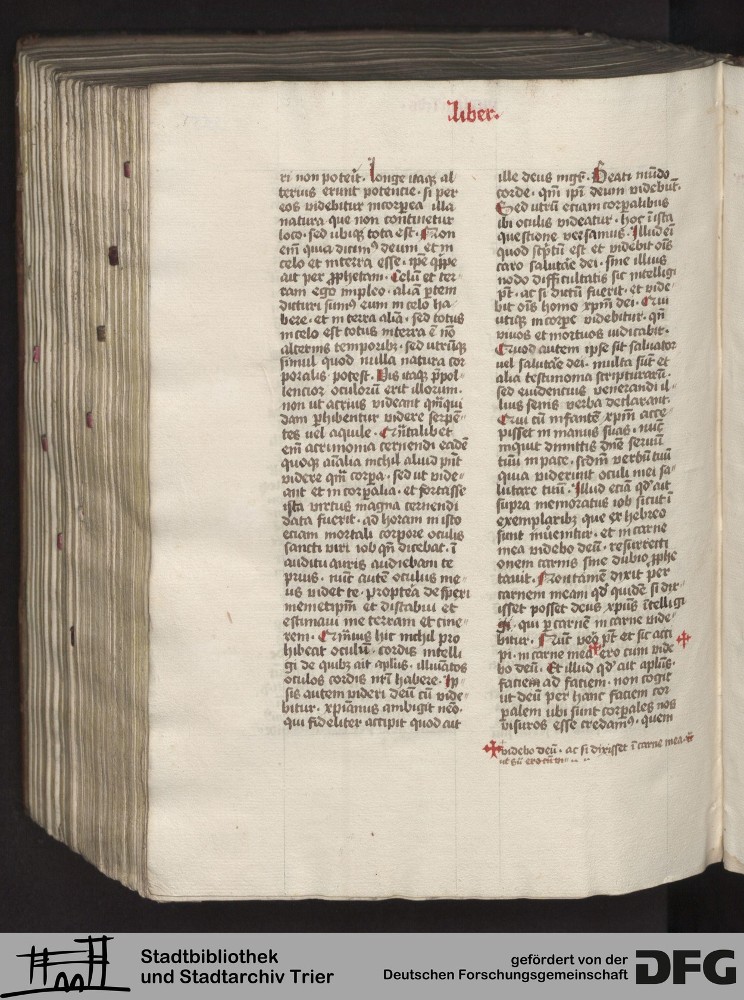 Liber.
ri non poteīt. Longe itaqꝫ al
terius erunt potentie. si per
eos videbitur incorpea illa
natura que non continetur
loco. sed ubiqꝫ tota est. Non
em̄ quia dicimꝰ deum et in
celo et in terra esse. ipe q̄ppe
ait per ꝓphetam. Celū et ter-
ram ego impleo. aliā ꝑtem
dicturi sumꝰ eum in celo ha-
bere. et in terra aliā. sed totus
in celo est totus in terra ē nō
alternis temporibꝫ. sed utrūqꝫ
simul quod nulla natura cor
poralis potest. Vis itaqꝫ p̄pol-
lencior oculorū erit illorum.
non ut acrius videant qm̄qui
dam ꝑhibentur videre serpē-
tes uel aquile. Quātalibet
em̄ acrimonia cernendi eadē
quoqꝫ aīalia nichil aliud pn̄t
videre qm̄ corpa. sed ut vide-
ant et incorpalia. et fortasse
ista virtus magna cernendi
data fuerit. ad horam in isto
etiam mortali corpore oculis
sancti viri iob qn̄ dicebat. ī
auditu auris audiebam te
prius. nūc autē oculus me-
us videt te. propterea despexi
memetipm̄ et distabui et
estimaui me terram et cine-
rem. Quāuis hic nichil pro
hibeat oculū cordis intelli
gi de quibꝫ ait aplus. illuīatos
oculos cordis nr̄i habere. Ip
sis autem videri deū cū vide-
bitur. xp̄ianus ambigit nēo.
qui fideliter accipit quod ait
ille deus mgr̄. Beati mūdo
corde. qm̄ ipī deum videbūt.
Sed utrū etiam corpalibus
ibi oculis videatur. hoc ī ista
questione versamus. Illud em̄
quod scptū est et videbit oīs
caro salutāe dei. sine illius
nodo difficultatis sic intelligi
pt̄. ac si dictū fuerit. et vide-
bit oīs homo xpm̄ dei. Qui
utiqꝫ in corpe videbitur. qn̄
viuos et mortuos iudicabit.
Quod autem ipse sit saluator
uel salutāe dei. multa sūt et
alia testimonia scripturarū.
sed euidencius venerandi il-
lius senis verba declarant.
Qui cū infantē xpm̄ acce-
pisset in manus suas. nūc
inquit dimittis dn̄e seruū
tuū in pace. scdm̄ verbū tuū
quia viderunt oculi mei sa-
lutare tuū. Illud etiā qd̓ ait
supra memoratus iob sicut ī
exemplaribꝫ que ex hebreo
sunt inueīmitur. et in carne
mea videbo deū. resurrecti
onem carnis sine dubio ꝓphe
tauit. Non tamē dixit per
carnem meam qd̓ quidē si dix-
isset posset deus xp̄us ītelligi
qui p carnē in carne vide-
bitur. Nūc vero pt̄ et sic acci
pi. in carne mea ero cum vide
bo deū. Et illud qd̓ ait aplus.
faciem ad faciem. non cogit
ut deū per hanc faciem cor
palem ubi sunt corpales nos
visuros esse credamꝰ. quem
videbo deū. ac si dixisset ī carne mea